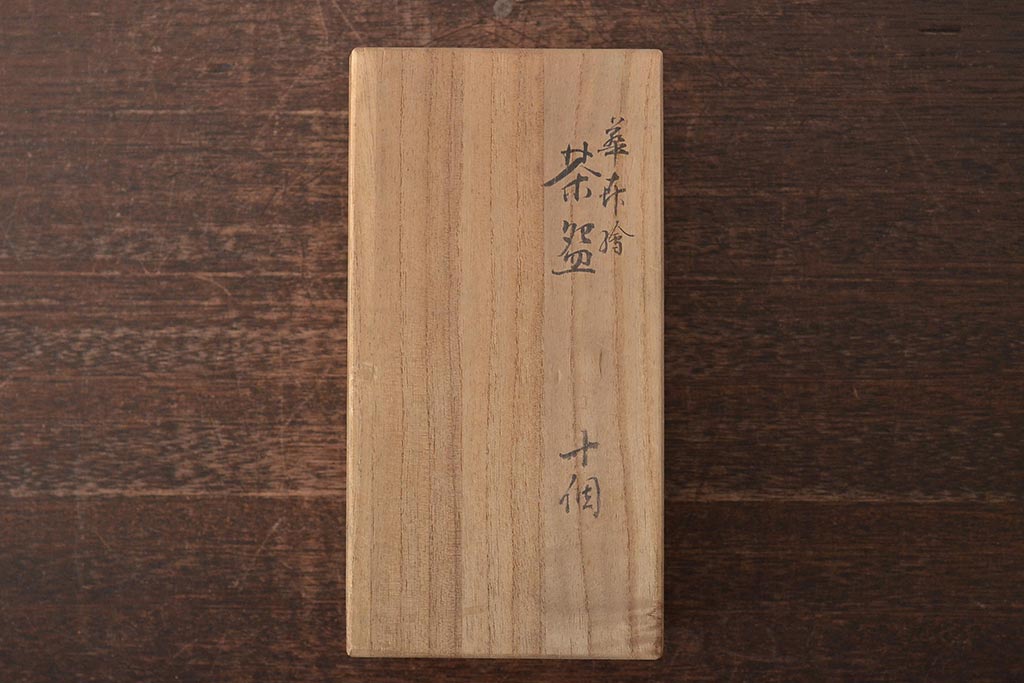 華卉繪
茶盌
十個